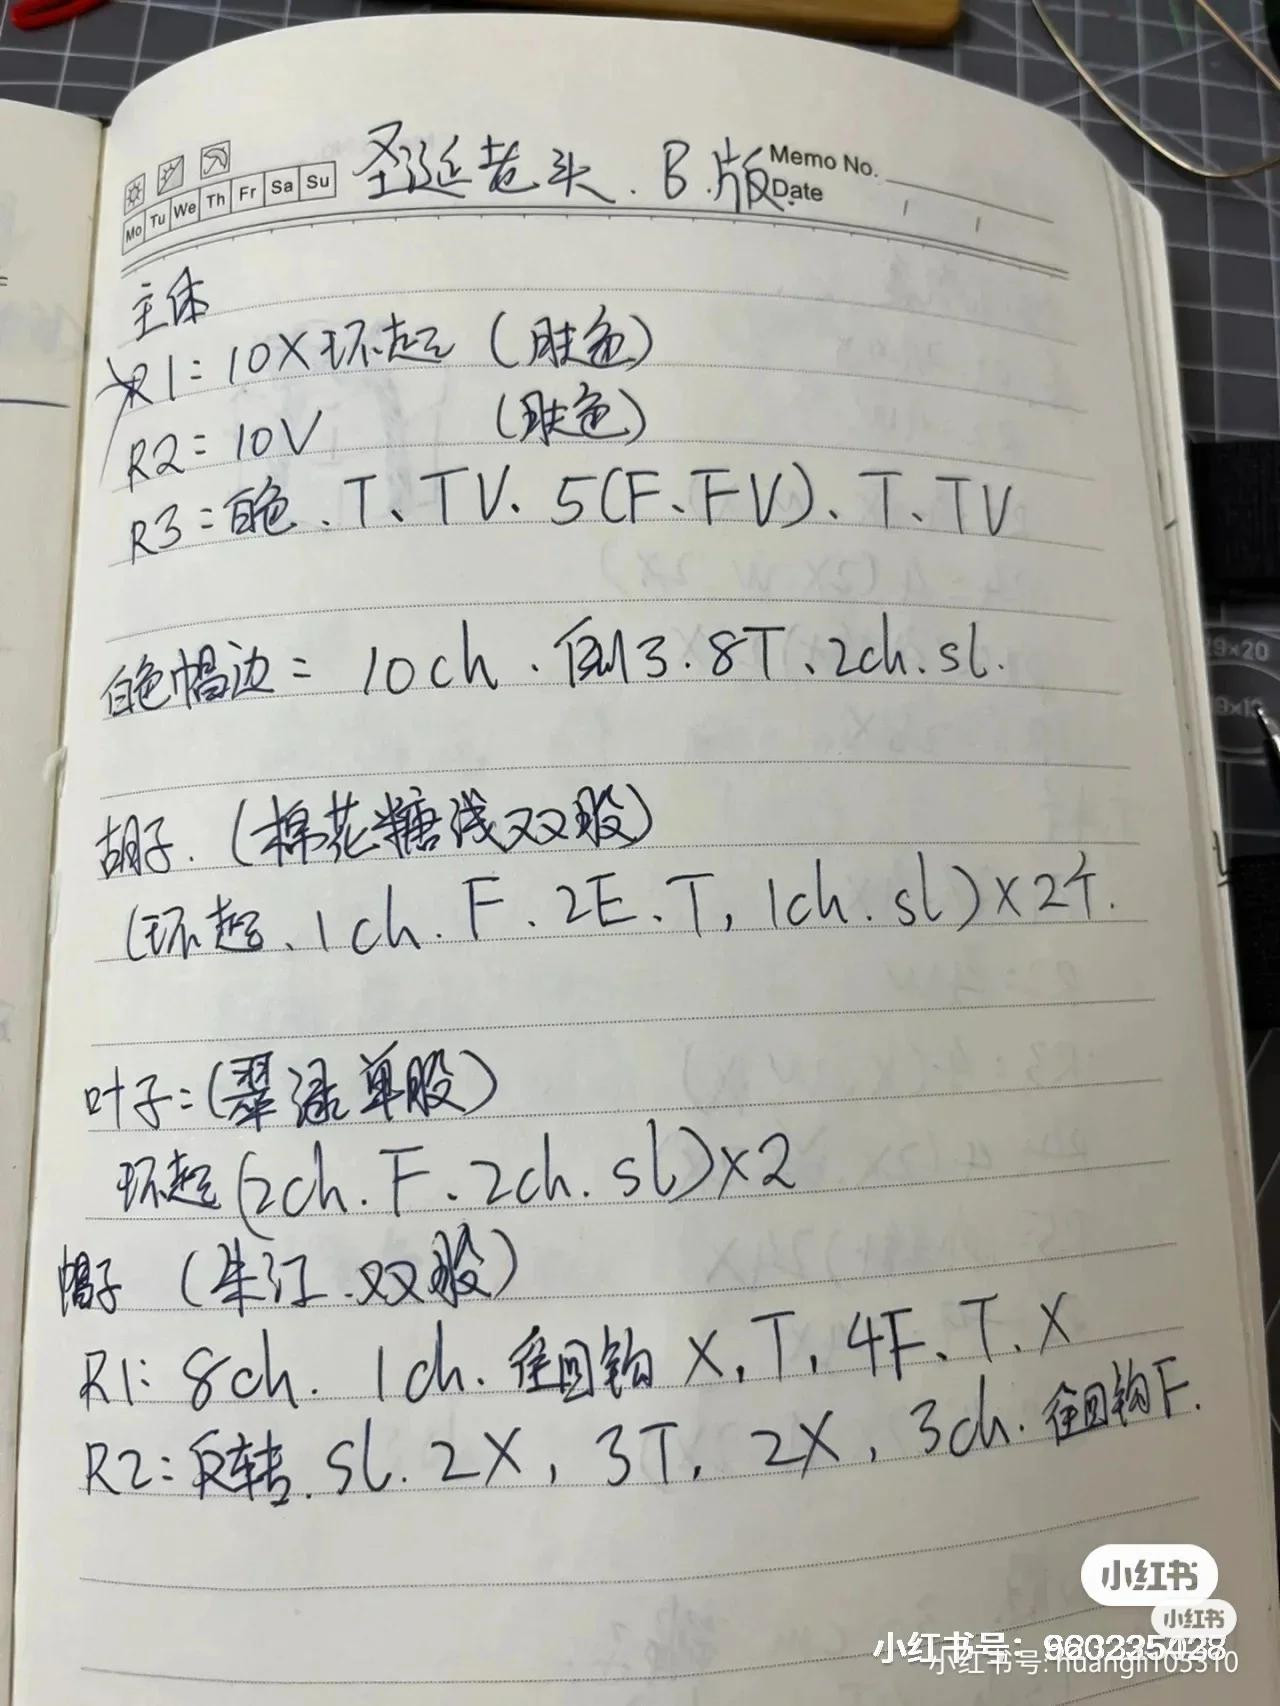 圣诞老头.B.版
Memo No.
Mo Tu We Th Fr Sa Su
Date
主体
R1:10X环起(肤色)
R2=10V (肤色)
R3=白色、T、TV、5(F、FV)、T、TV
白色帽边=10ch.倒3.8T、2ch.sl.
胡子.(棉花糖浅双股)
(环起、1ch.F.2E.T,1ch.sl)×2个.
叶子:(翠绿单股)
环起(2ch.F、2ch.sl)×2
帽子(朱江.双股)
R1:8ch.1ch.往回钩X,T,4F、T.X
R2:反转.sl.2X,3T,2X,3ch.往回钩F.
29×20
小红书
小红书
小红书号:960235028
小红书号:huangli105310